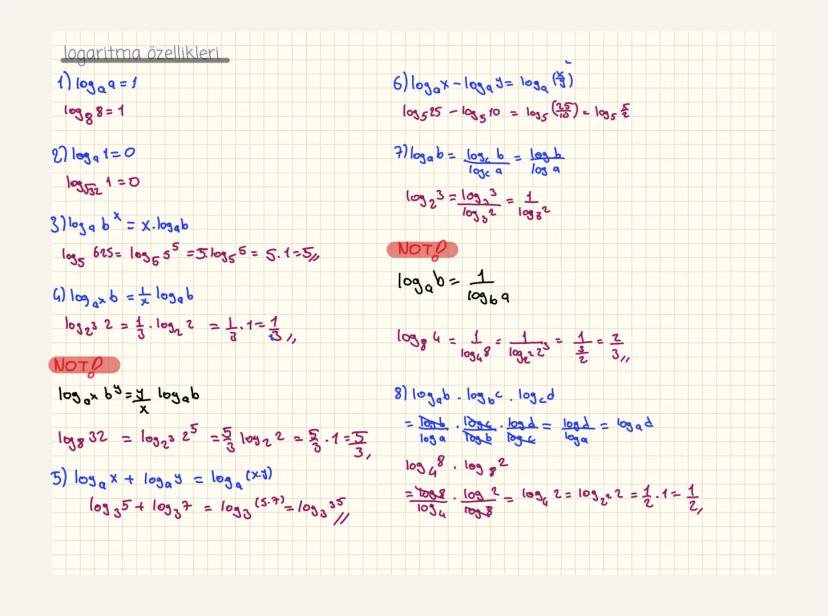 logaritma özellikleri
1) logₐ a = 1
log₈ 8 = 1
2) logₐ 1 = 0
log_√32 1 = 0
3) logₐ b^x = x . logₐ b
log₅ 625 = log₅ 5⁵ = 5. log₅ 5 = 5 . 1 = 5//
4) log_a^x b = 1/x logₐ b
log_2³ 2 = 1/3 . log₂ 2 = 1/3 . 1 = 1/3 //
NOT!
log_a^x b^y = y/x logₐ b
log₈ 32 = log_2³ 2⁵ = 5/3 log₂ 2 = 5/3 . 1 = 5/3,
5) logₐ x + logₐ y = logₐ (x.y)
log₃ 5 + log₃ 7 = log₃ (5.7) = log₃ 35 //
6) logₐ x - logₐ y = logₐ (x/y)
log₅ 25 - log₅ 10 = log₅ (25/10) = log₅ 5/2
7) logₐ b = log_c b / log_c a = log b / log a
log₂ 3 = log₃ 3 / log₃ 2 = 1 / log₃ 2
NOT!
logₐ b = 1 / log_b a
log₈ 4 = 1 / log₄ 8 = 1 / log_2² 2³ = 1 / 3/2 = 2/3 //
8) logₐ b . log_b c . log_c d
= log b / log a . log c / log b . log d / log c = log d / log a = logₐ d
log₄ 8 . log₈ 2
= log 8 / log 4 . log 2 / log 8 = log₄ 2 = log_2² 2 = 1/2 . 1 = 1/2,